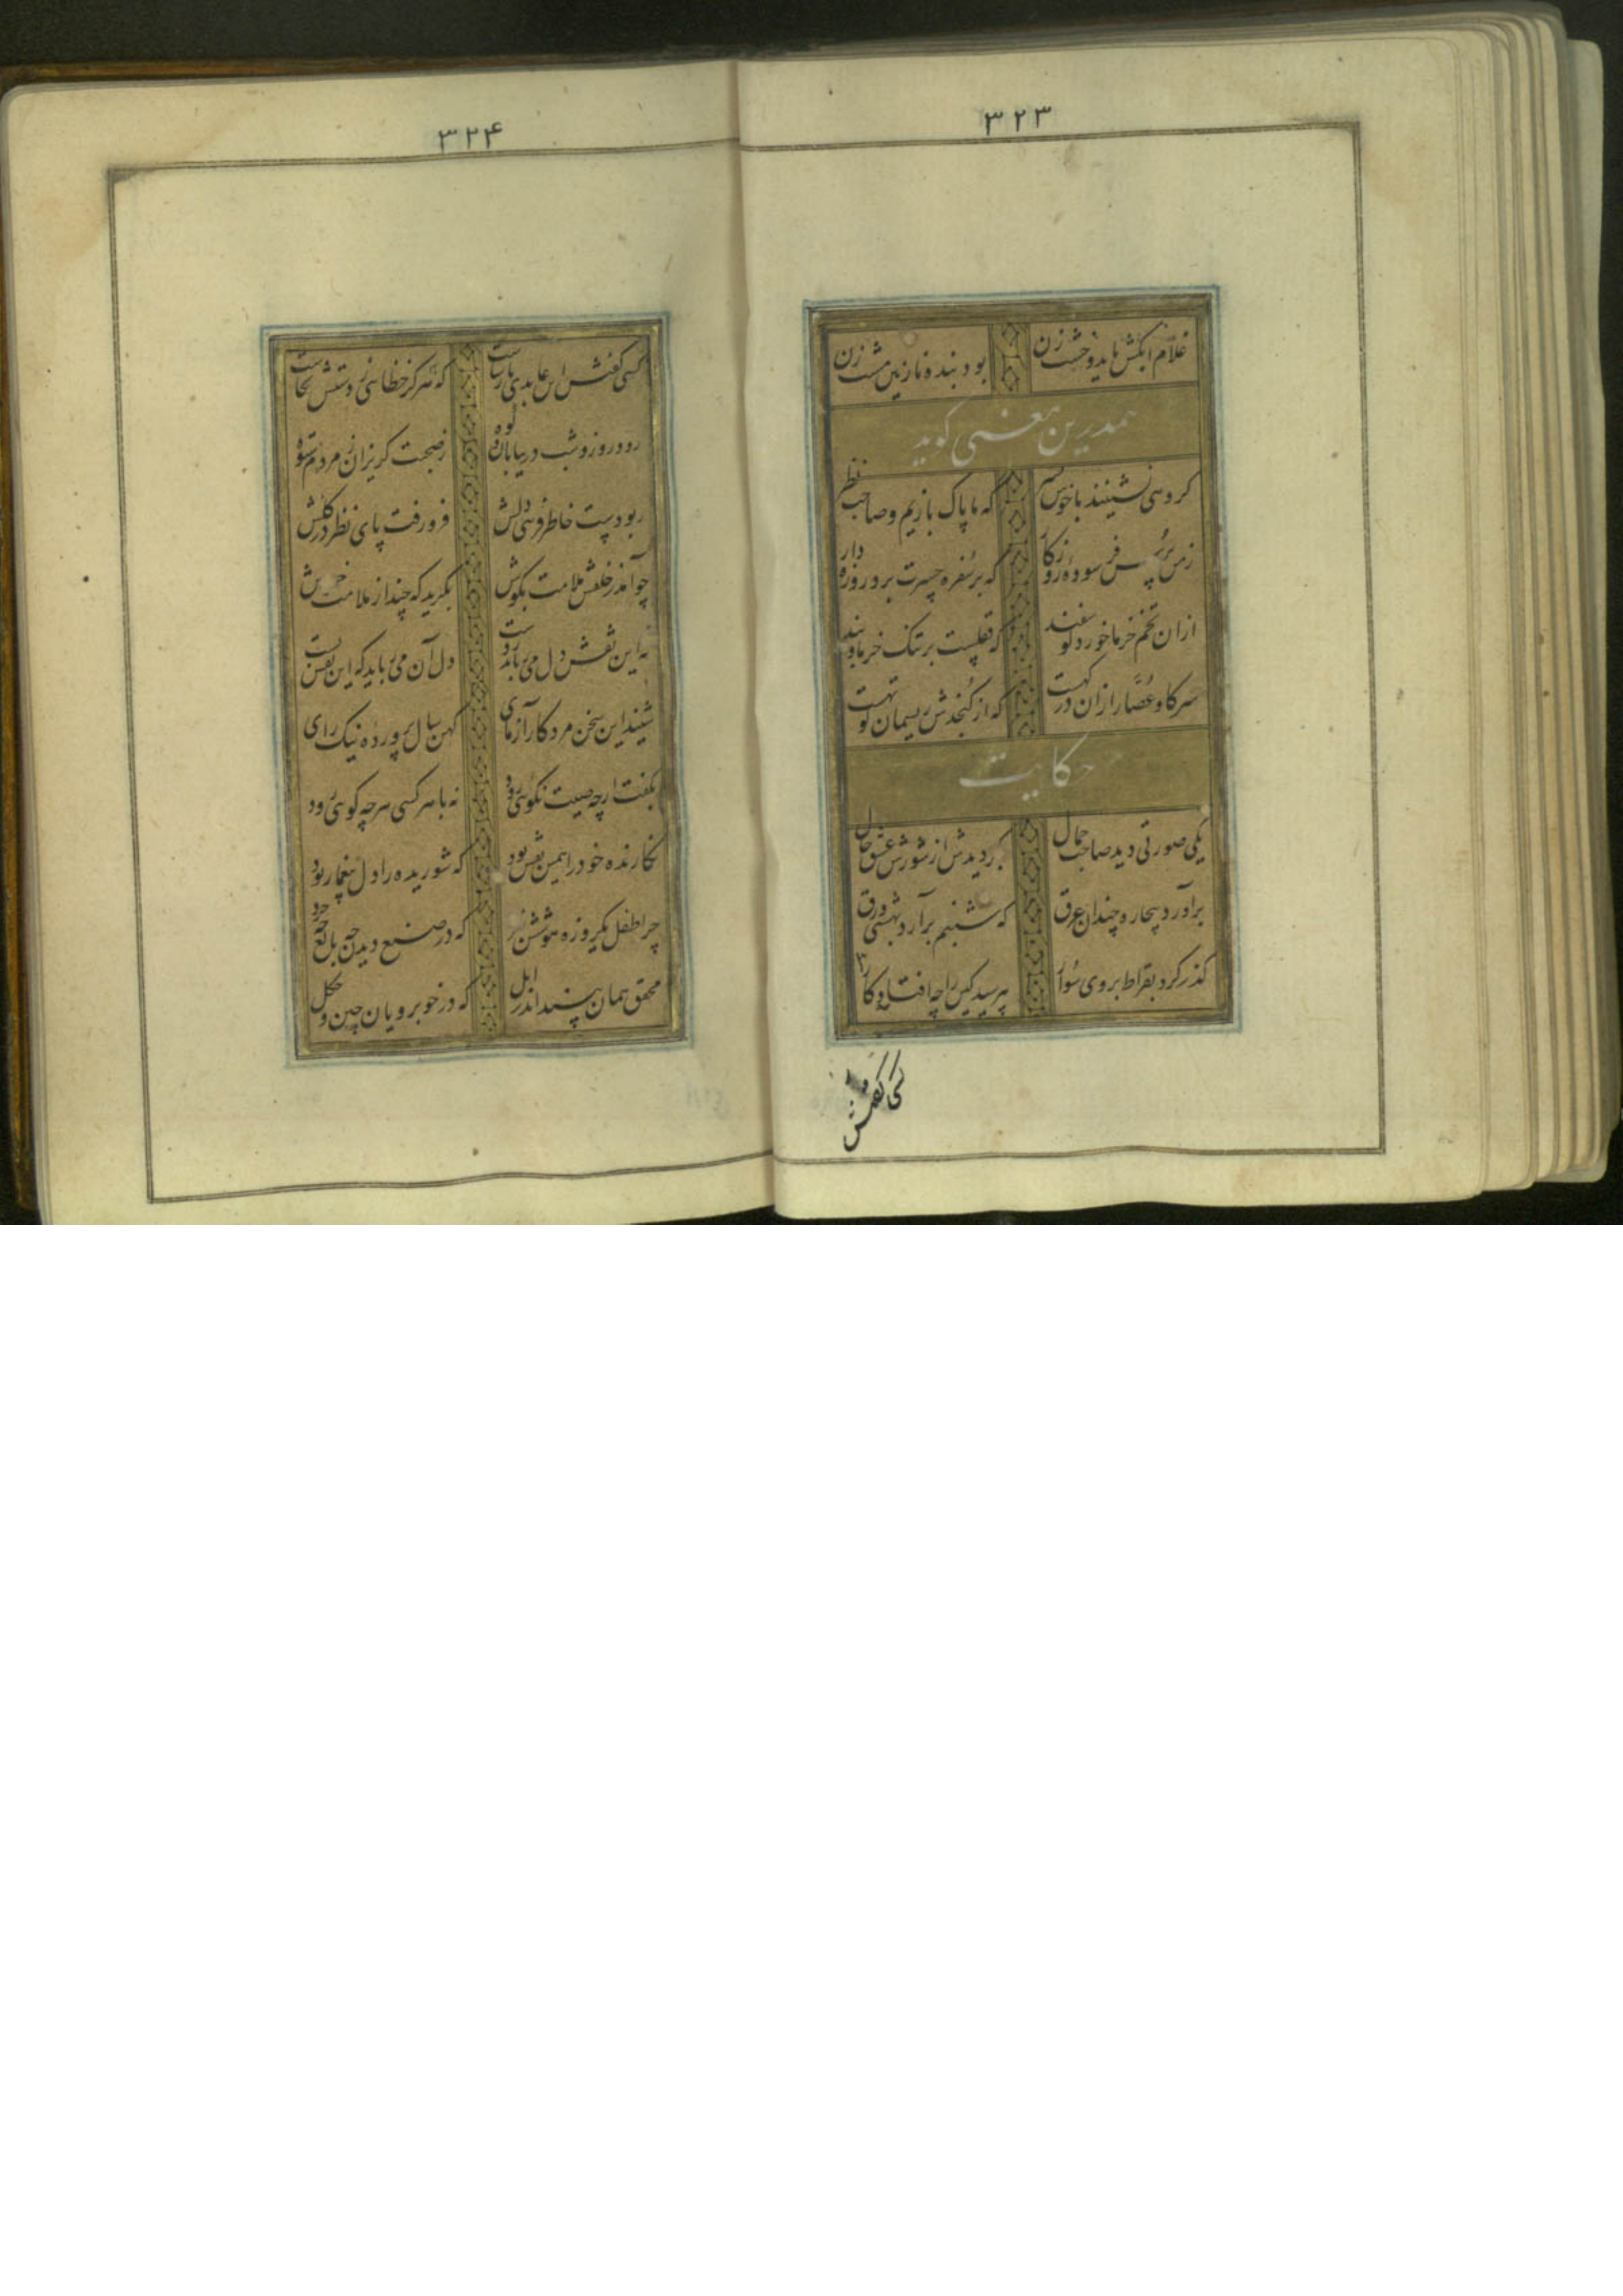 ۳۲۳
غلام آبکش باید و خشت زن بود بنده نازنین مشت زن
هم درین معنی گوید
کروهی نشینند با خوش پسر که ما پاک بازیم و صاحب نظر
ز من پرس فرسوده روزکار که بر سفره حسرت برد روزه دار
از ان تخم خرما خورد کوسفند که قفلست بر تنک خرما و بند
سر کاو عصار ازان در کهست که از کنجدش ریسمان کوتهست
حکایت
یکی صورتی دید صاحب جمال بکردیدش از شورش عشق حال
برآورد بیچاره چندان عرق که شبنم برآرد بهشتی ورق
گذر کرد بقراط بروی سوار بپرسید کین را چه افتاد کار
کسی گفتش
۳۲۴
کسی گفتش این عابدی پارساست که هرکز خطائی ز دستش نخاست
رود روز و شب در بیابان و کوه ز صحبت کریزان ز مردم ستوه
ربودست خاطر فریبی دلش فرو رفت پای نظر در گلش
چو آمد ز خلقش ملامت بکوش بگرید که چند از ملامت خموش
نه این نقش دل می رباید ز دست دل آن می رباید که این نقش بست
شنید این سخن مرد کارآزمای کهن سال پرورده نیک رای
بکفت ار چه صیت نکوئی رود نه با هر کسی هرچه کوئی رود
نکارنده خود را همین نقش بود که شوریده را دل بیغما ربود
چرا طفل یکروزه هوشش نبرد که در صنع دیدن چه بالغ چه خرد
محقق همان بیند اندر ابل که در خوبرویان چین و چکل